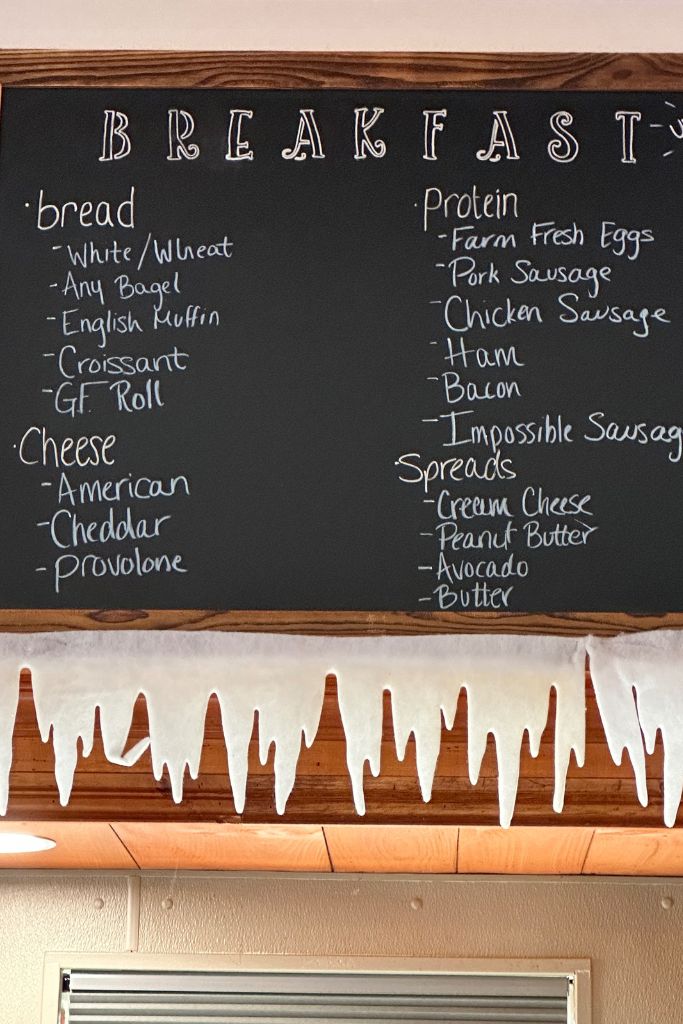 BREAKFAST
· bread
- White/Wheat
- Any Bagel
- English Muffin
- Croissant
- G.F. Roll
· Cheese
- American
- Cheddar
- Provolone
· Protein
- Farm Fresh Eggs
- Pork Sausage
- Chicken Sausage
- Ham
- Bacon
- Impossible Sausag
· Spreads
- Cream Cheese
- Peanut Butter
- Avocado
- Butter